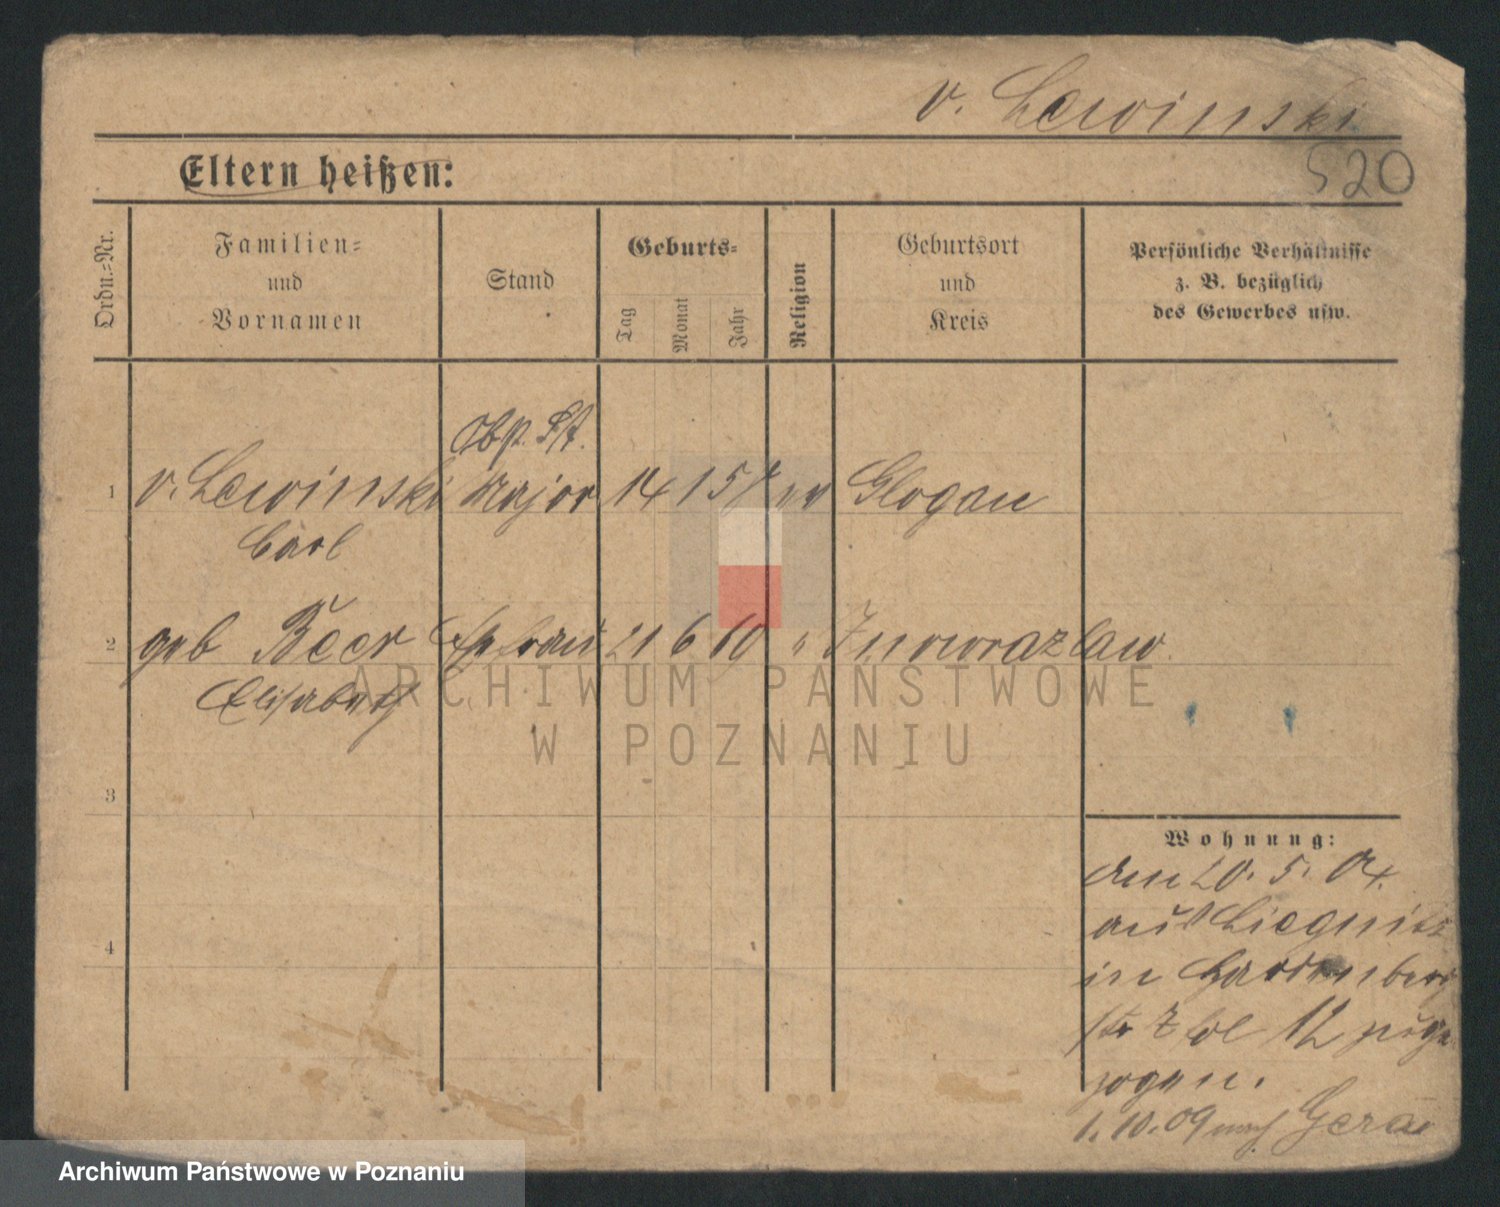 v. Lewinski
520
Eltern heißen:
Ordn.=Nr.
Familien=
und
Vornamen
Stand
Geburts=
Tag
Monat
Jahr
Religion
Geburtsort
und
Kreis
Persönliche Verhältnisse
z. B. bezüglich
des Gewerbes usw.
1
v. Lewinski
Carl
Major
14 1 58 ev
Glogau
2
geb Beer
Elisabeth
Ehefrau
21 6 60 "
Inowrazlaw
3
4
Wohnung:
den 20. 5. 04.
aus Liegnitz
in
str 7 bl 12 zuge
zogen.
1.10.09 nach Gera
ARCHIWUM PAŃSTWOWE
W POZNANIU
Archiwum Państwowe w Poznaniu